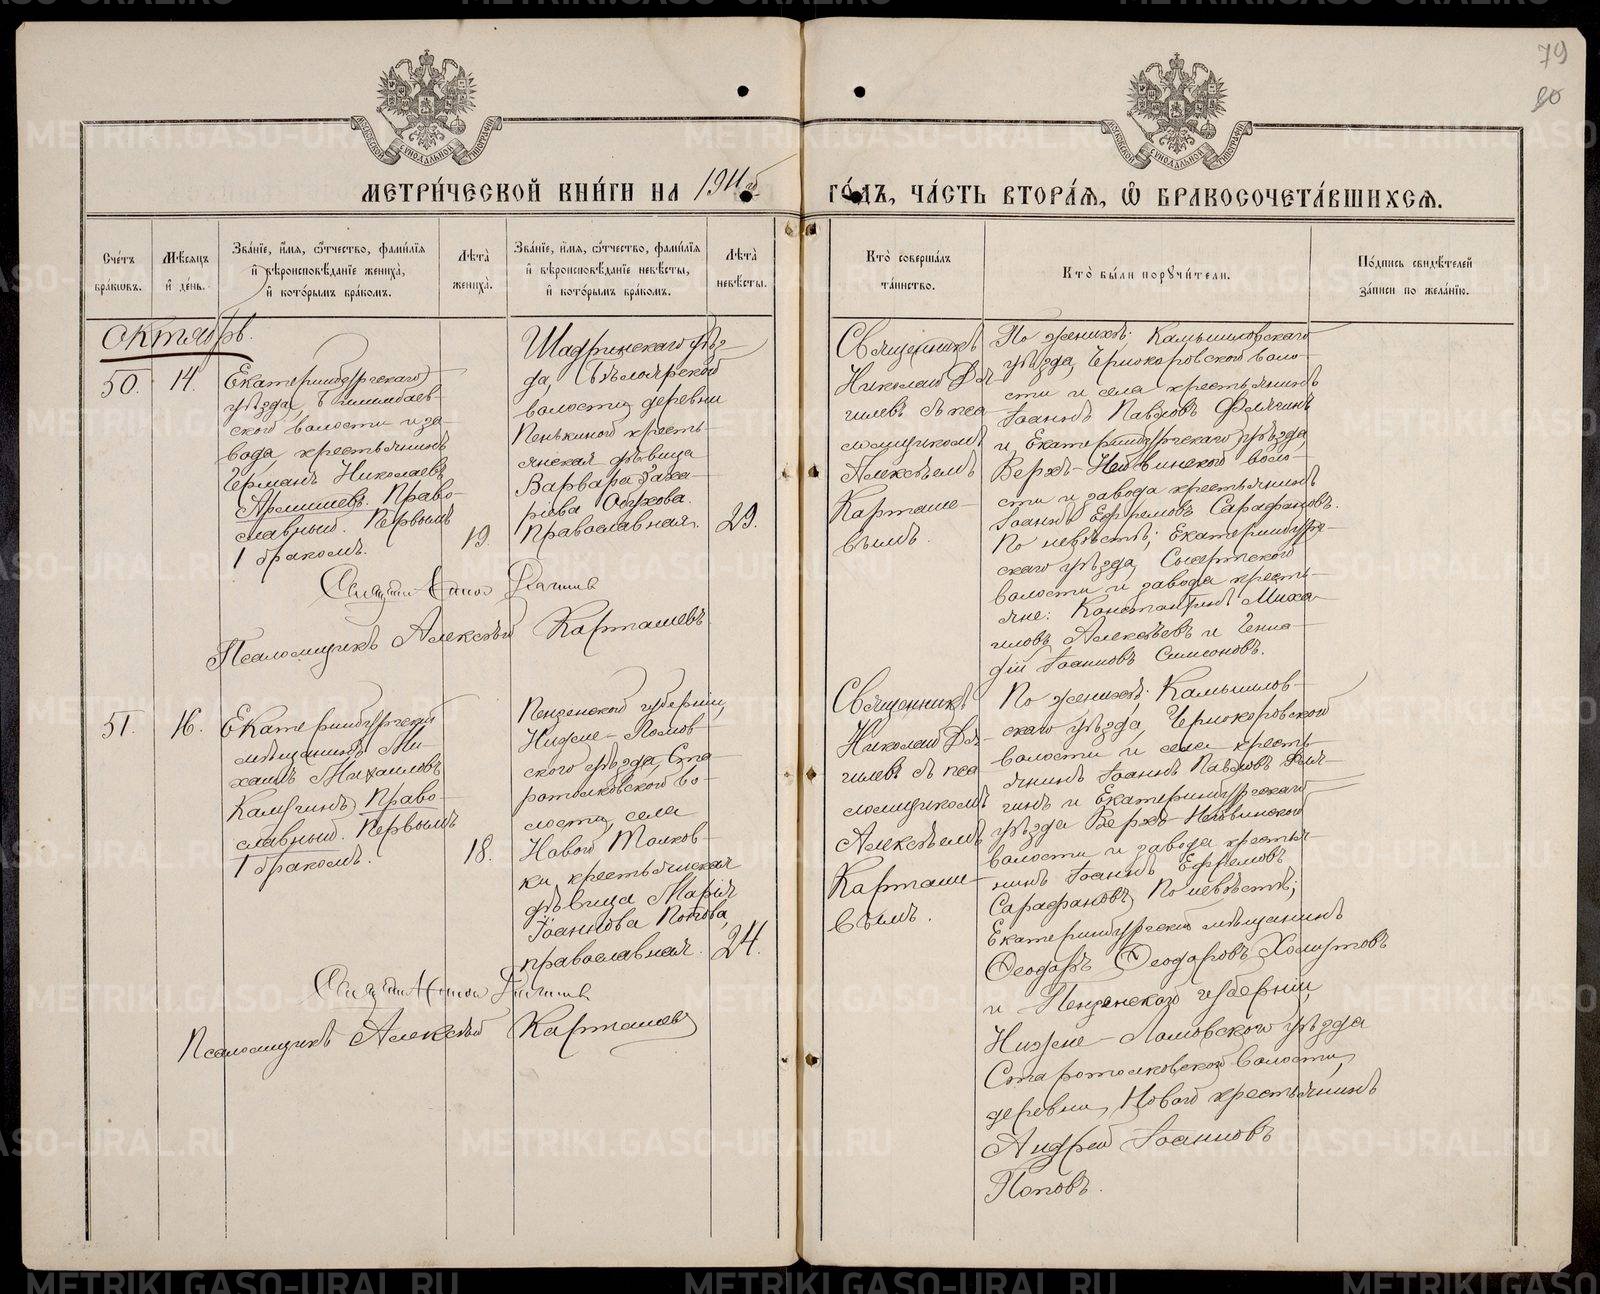 79
80
МЕТРИ́ЧЕСКОЙ КНИ́ГИ НА 1911й
ГО́ДЪ, ЧА́СТЬ ВТОРА́Я, Ѽ БРАКОСОЧЕТА́ВШИХСЯ.
Сче́тъ бра́ковъ.
Мѣ́сяцъ и҆ де́нь.
Зва́нїе, и҆́мя, ѻ҆́тчество, фами́лїя и҆ вѣроисповѣ́данїе жениха̀, и҆ кото́рымъ бра́комъ.
Лѣ́та жениха̀.
Зва́нїе, и҆́мя, ѻ҆́тчество, фами́лїя и҆ вѣроисповѣ́данїе невѣ́сты, и҆ кото́рымъ бра́комъ.
Лѣ́та невѣ́сты.
Кто̀ соверша́лъ та́инство.
Кто̀ бы́ли порꙋчи́тели.
По́дпись свидѣ́телей за́писи по жела́нїю.
Октябрь.
50.
14.
Екатеринбургскаго
уѣзда, Билимбаев-
ской волости и за-
вода крестьянинъ
Германъ Николаевъ
Право-
славный. Первымъ
1 бракомъ.
19.
Шадринскаго уѣз-
да, Бѣлоярской
волости, деревни
Пенькиной кресть-
янская дѣвица
Варвара Заха-
рiева Обухова.
Православная.
29.
Священникъ
Николай Дя-
гилевъ съ пса-
ломщикомъ
Алексѣемъ
Карташе-
вымъ.
По женихѣ: Камышловскаго
уѣзда, Чернокоровской воло-
сти и села крестьянинъ
Iоаннъ Павловъ Фомягинъ
и Екатеринбургскаго уѣзда
Верхъ-Нейвинской воло-
сти и завода крестьянинъ
Iоаннъ Ефремовъ Сарафановъ.
По невѣстѣ; Екатеринбург-
скаго уѣзда, Сысертской
волости и завода кресть-
яне: Константинъ Миха-
иловъ Алексѣевъ и Генна-
дiй Iоанновъ Симоновъ.
Священ. Николай Дягилевъ
Псаломщикъ Алексѣй Карташевъ
51.
16.
Екатеринбургскiй
мѣщанинъ Ми-
хаилъ Михаиловъ
Калугинъ, Право-
славный. Первымъ
1 бракомъ.
18.
Пензенской губернiи,
Нижне-Ломов-
скаго уѣзда, Ста-
ротолковской во-
лости, села
Новой Толков-
ки крестьянская
дѣвица Марiя
Iоаннова Попова,
православная.
24.
Священникъ
Николай Дя-
гилевъ съ пса
ломщикомъ
Алексѣемъ
Карташе-
вымъ.
По женихѣ; Камышлов-
скаго уѣзда, Чернокоровской
волости и села кресть-
янинъ Iоаннъ Павловъ Фомя-
гинъ и Екатеринбургскаго
уѣзда Верхъ-Нейвинской
волости и завода крестья-
нинъ Iоаннъ Ефремовъ
Сарафановъ, По невѣстѣ;
Екатеринбургскiй мѣщанинъ
Ѳеодоръ Ѳеодоровъ Хомутовъ
и Пензенской губернiи,
Нижне-Ломовскаго уѣзда
Старотолковской волости,
деревни Новой крестьянинъ
Андрей Iоанновъ
Поповъ.
Священ. Николай Дягилевъ
Псаломщикъ Алексѣй Карташевъ
METRIKI.GASO-URAL.RU